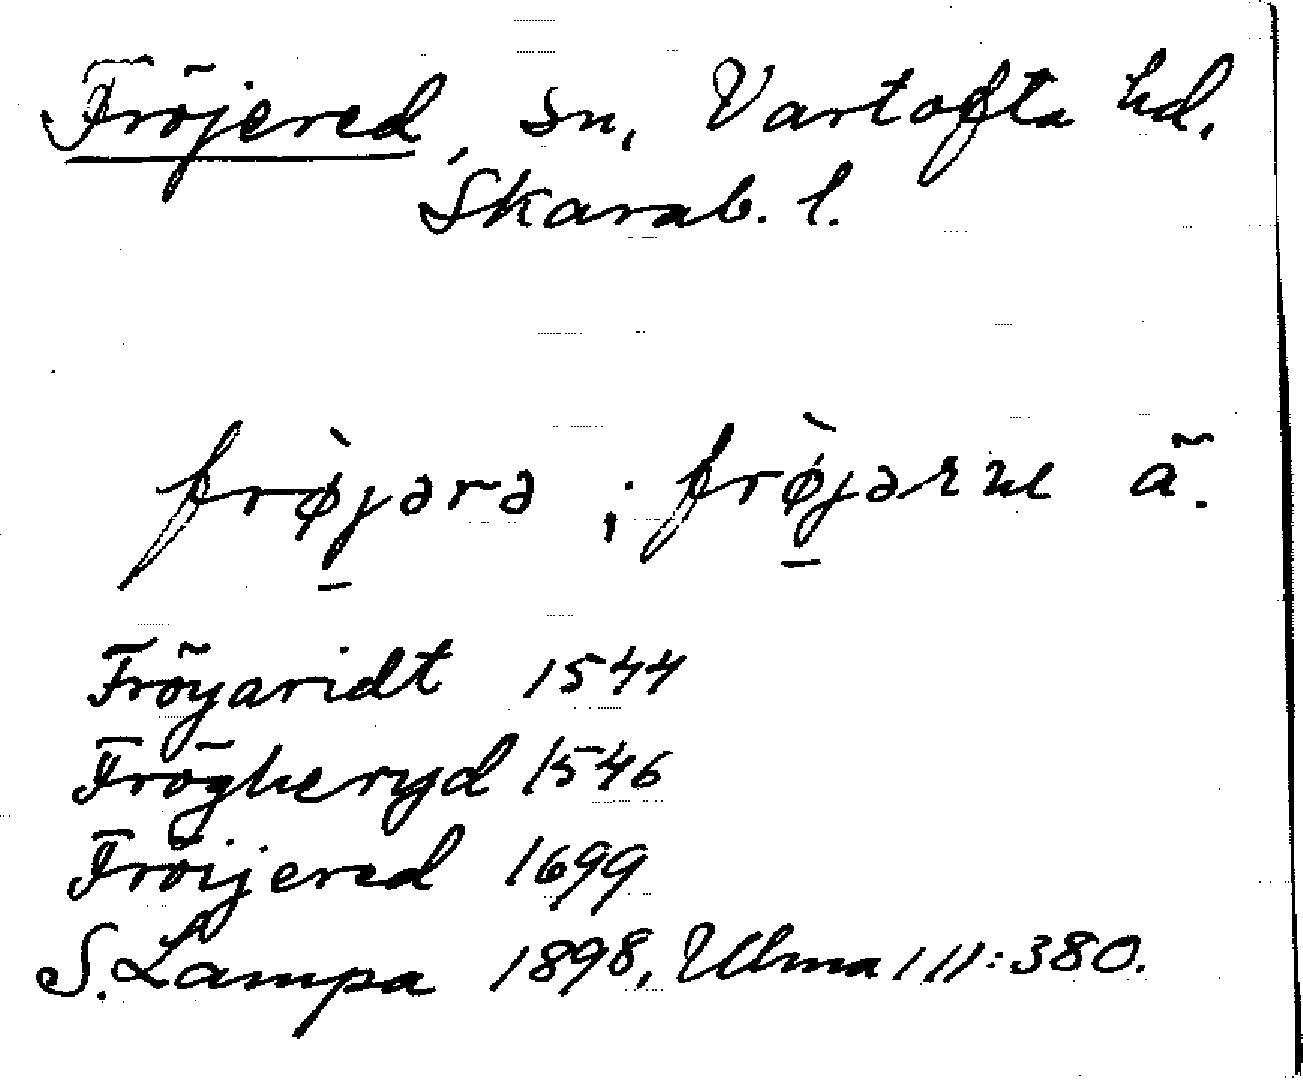 Fröjered, sn, Vartofta hd,
Skarab. l.
frø̀jərə ; frø̀jərne ä.
Fröyaridt 1544
Frögheryd 1546
Fröijered 1699
S. Lampa 1898, Ulma 111:380.